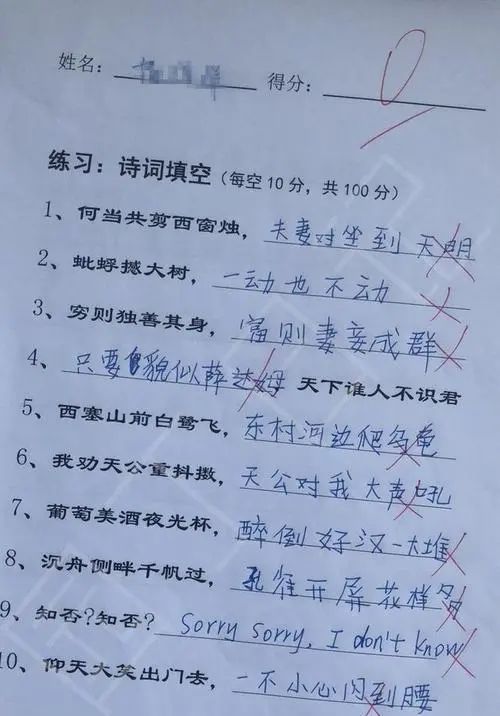 姓名: 得分: 0
练习：诗词填空（每空10分，共100分）
1、何当共剪西窗烛，夫妻对坐到天明
2、蚍蜉撼大树，一动也不动
3、穷则独善其身，富则妻妾成群
4、只要貌似薛达姆 天下谁人不识君
5、西塞山前白鹭飞，东村河边爬乌龟
6、我劝天公重抖擞，天公对我大声吼
7、葡萄美酒夜光杯，醉倒好汉一大堆
8、沉舟侧畔千帆过，孔雀开屏花样多
9、知否?知否? Sorry sorry, I don't know
10、仰天大笑出门去，一不小心闪到腰